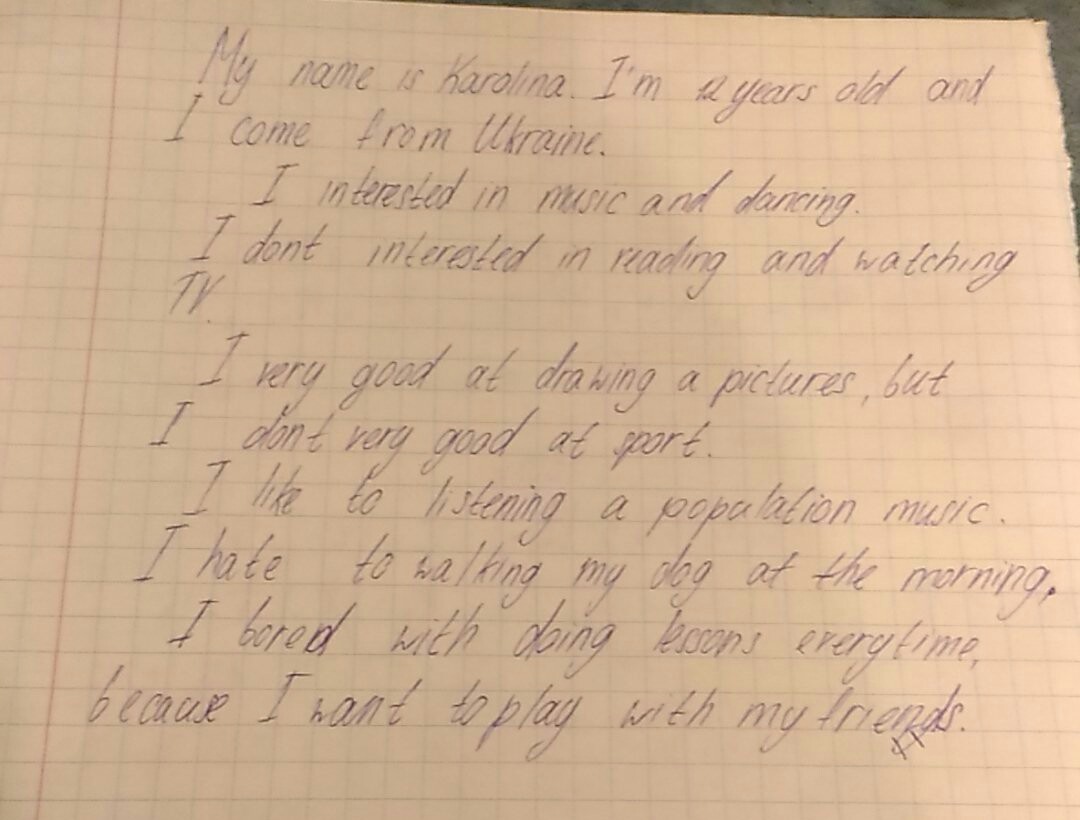 My name is Karolina. I'm 12 years old and
I come from Ukraine.
I interested in music and dancing.
I dont interested in reading and watching
TV.
I very good at drawing a pictures, but
I dont very good at sport.
I like to listening a population music.
I hate to walking my dog at the morning.
I bored with doing lessons everytime,
because I want to play with my friends.